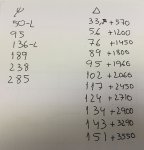 φ
50-L
95
136-L
189
238
285
Δ
33,7+570
56+1200
76+1450
89+1800
95+1960
102+2060
117+2450
124+2710
134+2900
143+3290
151+3550